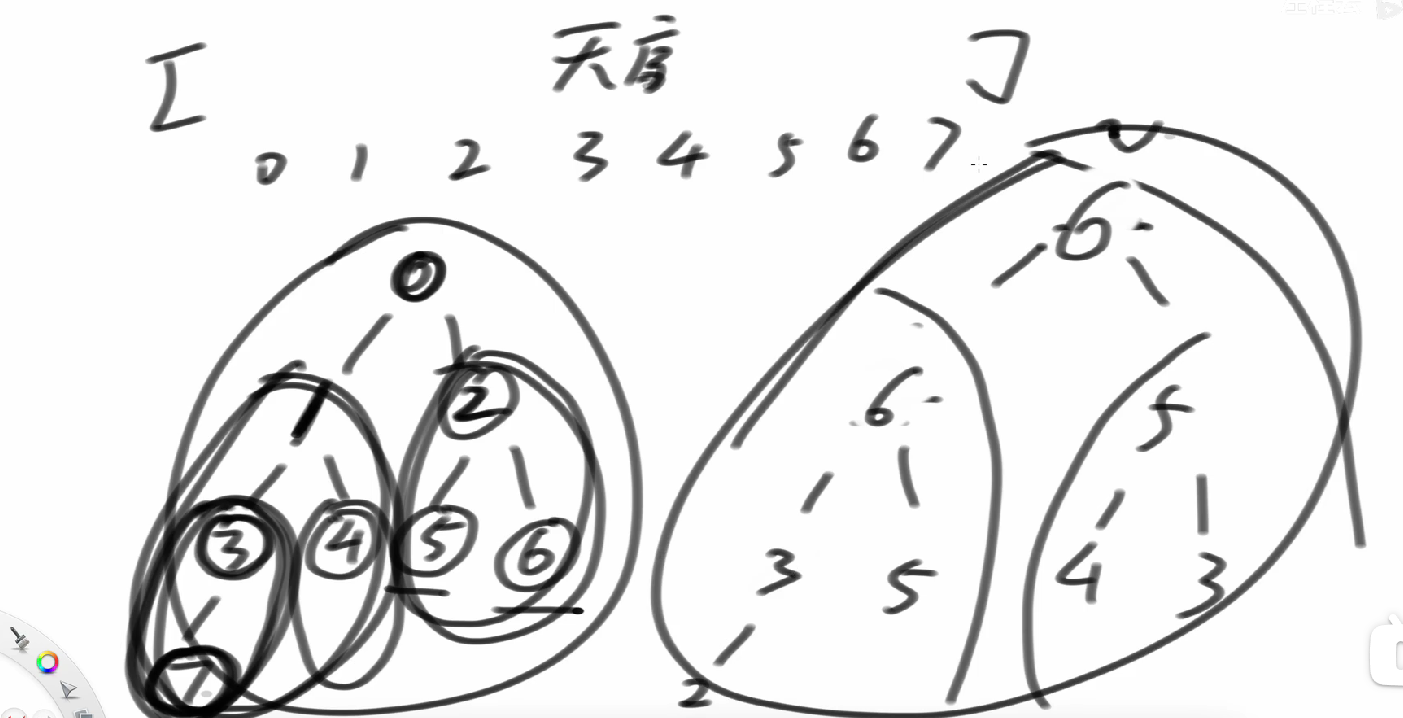 [ 无序 ]
0 1 2 3 4 5 6 7
0
1 2
3 4 5 6
7
0
6 5
3 5 4 3
2